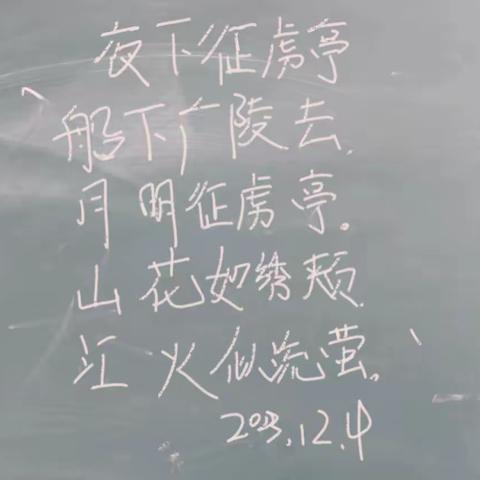 夜下征虏亭
船下广陵去,
月明征虏亭。
山花如绣颊,
江火似流萤。
2023.12.4